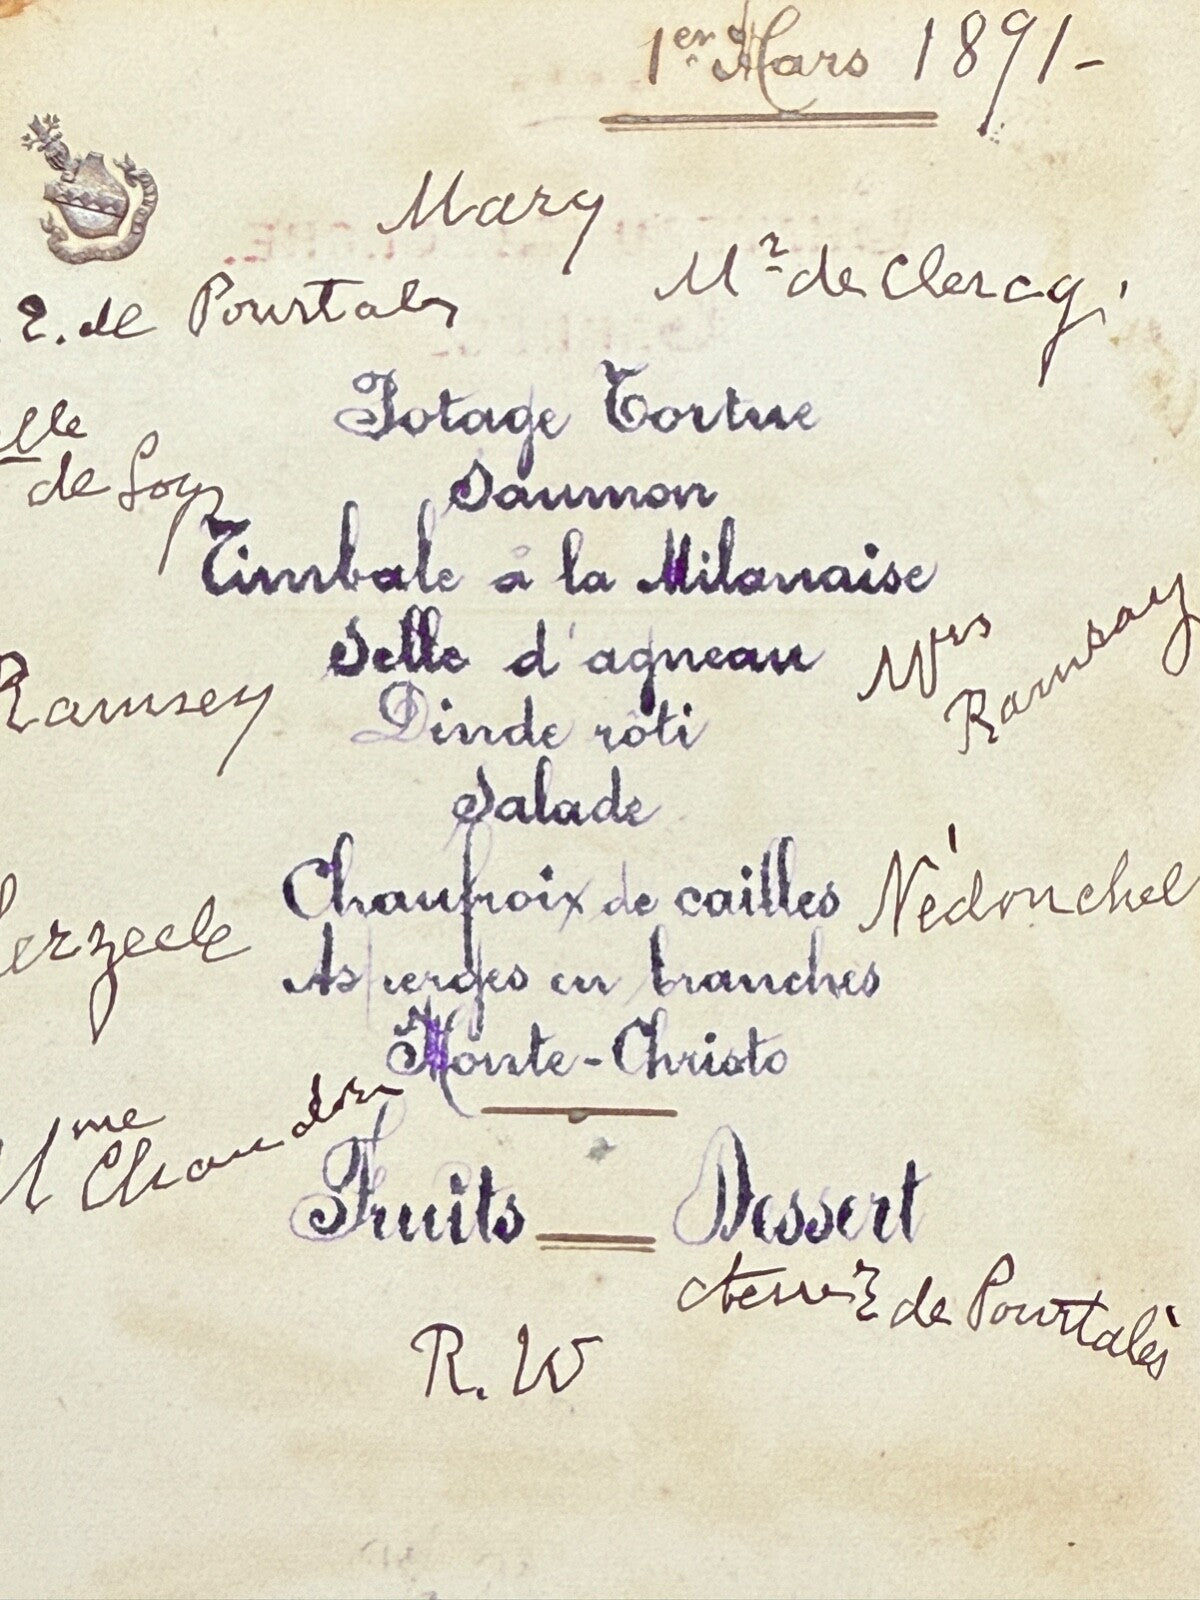 1er Mars 1891-
Mary
Mr de Clercq
. de Pourtalès
lle
de Loys
Potage Tortue
Saumon
Timbale à la Milanaise
Selle d'agneau
Dinde rôti
Salade
Chaufroix de cailles
Asperges en branches
Monte-Christo
Fruits Dessert
Ramsey
Mrs
Ramsay
Nédonchel
erzeele
me
Chandon
de Pourtalès
R. W